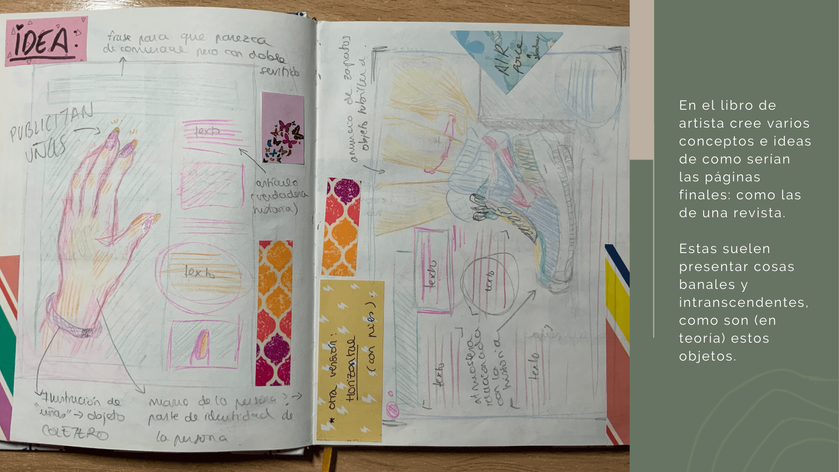 IDEA:
frase para que parezca
de comienzo pero con doble
sentido
PUBLICITAN
UÑAS
texto
artículo
(verdadera
historia)
texto
Ilustración de
"uñas" → objeto
COLETERO
mano de la persona →
parte de identidad de
la persona
anuncio de zapatos
objeto
AIR
force
texto
texto
texto
texto
atmósfera
relacionada
con la
historia
* otra versión:
HORIZONTAL
(con pies).
En el libro de
artista cree varios
conceptos e ideas
de como serian
las páginas
finales: como las
de una revista.
Estas suelen
presentar cosas
banales y
intranscendentes,
como son (en
teoría) estos
objetos.